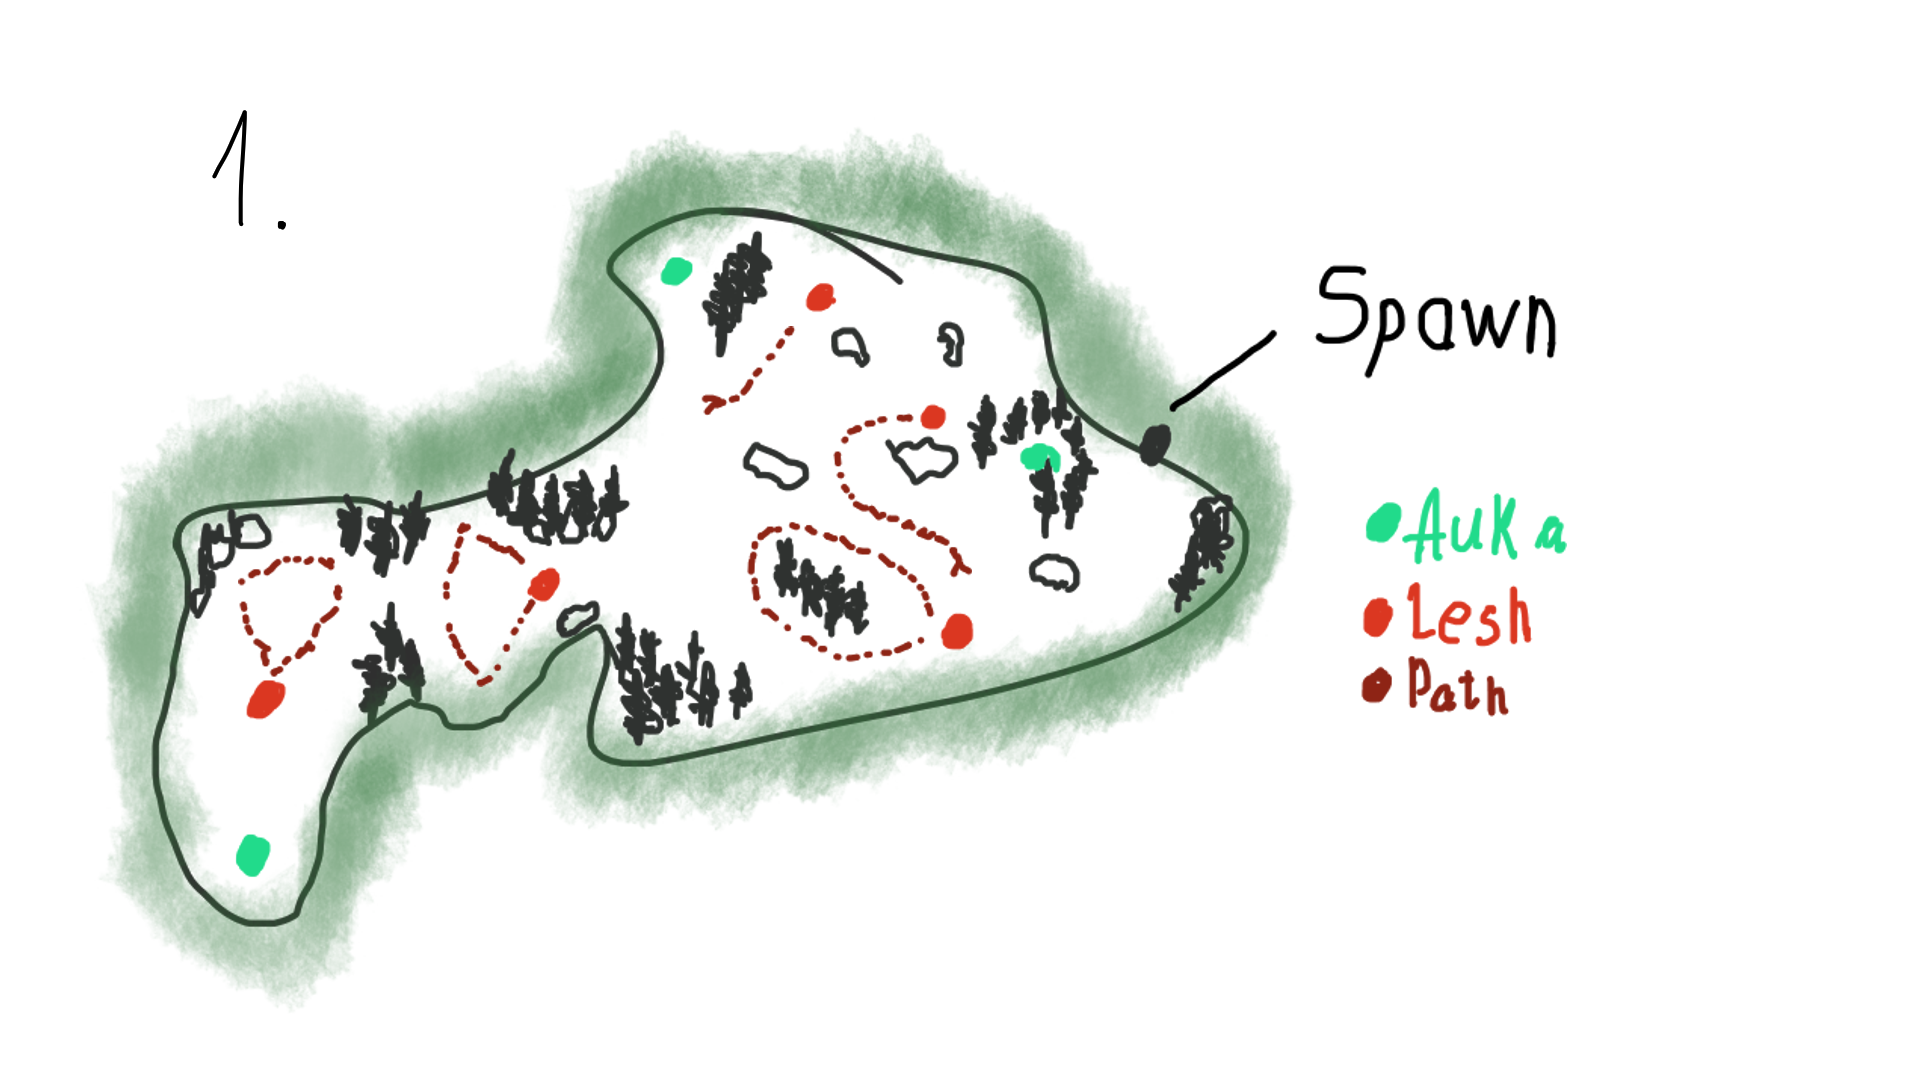 1.
Spawn
Auka
Lesh
Path